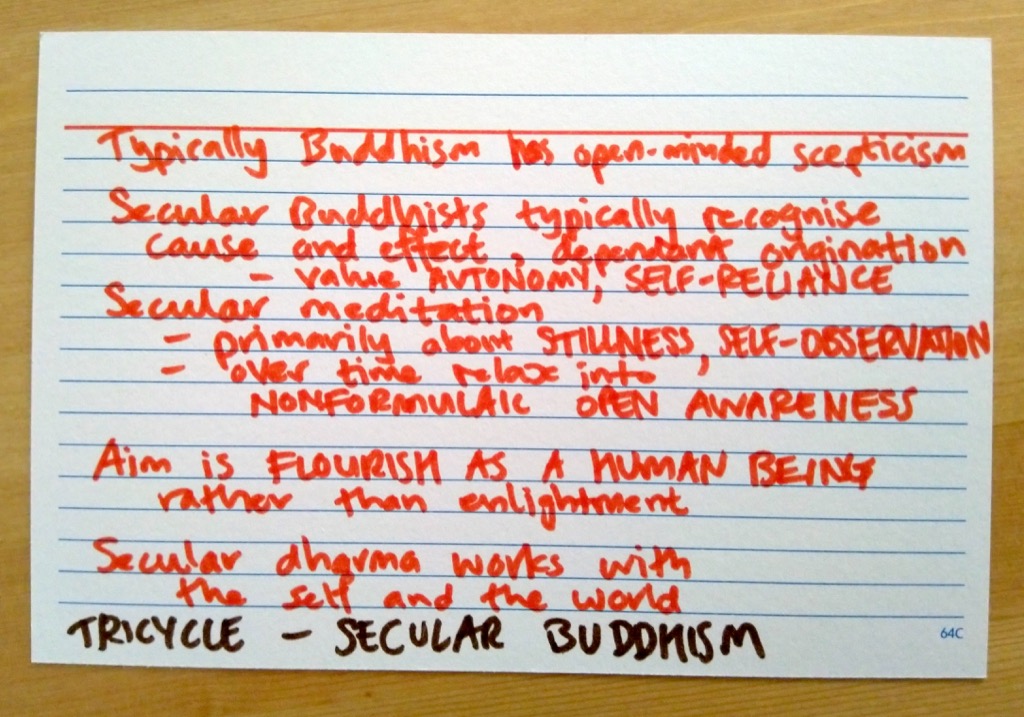 Typically Buddhism has open-minded scepticism
Secular Buddhists typically recognise
cause and effect, dependant origination
- value AUTONOMY, SELF-RELIANCE
Secular meditation
- primarily about STILLNESS, SELF-OBSERVATION
- over time relax into
NONFORMULAIC OPEN AWARENESS
Aim is FLOURISH AS A HUMAN BEING
rather than enlightment
Secular dharma works with
the self and the world
TRICYCLE - SECULAR BUDDHISM
64C